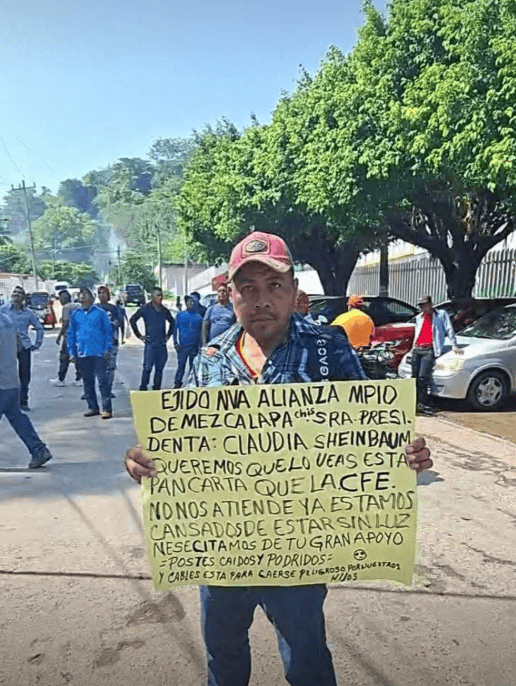 EJIDO NVA ALIANZA MPIO
DE MEZCALAPA chis SRA. PRESI
DENTA: CLAUDIA SHEINBAUM
QUEREMOS QUE LO VEAS ESTA
PANCARTA QUE LA CFE.
NO NOS ATIENDE YA ESTAMOS
CANSADOS DE ESTAR SIN LUZ
NESECITAMOS DE TU GRAN APOYO
=POSTES CAIDOS Y PODRIDOS=
Y CABLES ESTA PARA CAERSE PELIGROSO POR NUESTROS
HIJOS